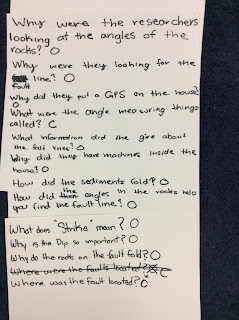 Why were the researchers
looking at the angles of the
rocks? O
Why were they looking for the
fault line? O
Why did they put a GPS on the house?
O
What were the angle measuring things
called? C
What information did the give about
the falt lines? O
Why did they have machines inside the
house? O
How did the sediments fold? O
How did the angles in the rocks help
you find the fault line? O
What does "Strike" mean? O
Why is the Dip so important? O
Why do the rocks on the fault fold? O
Where were the faults located? C
Where was the fault located? C